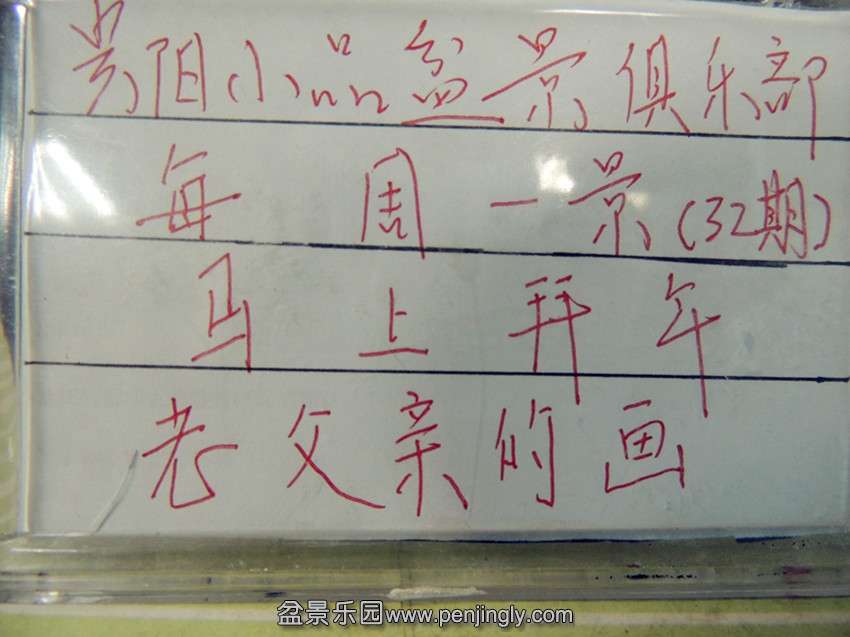 贵阳小品盆景俱乐部
每周一景(32期)
马上拜年
老父亲的画
盆景乐园www.penjingly.com